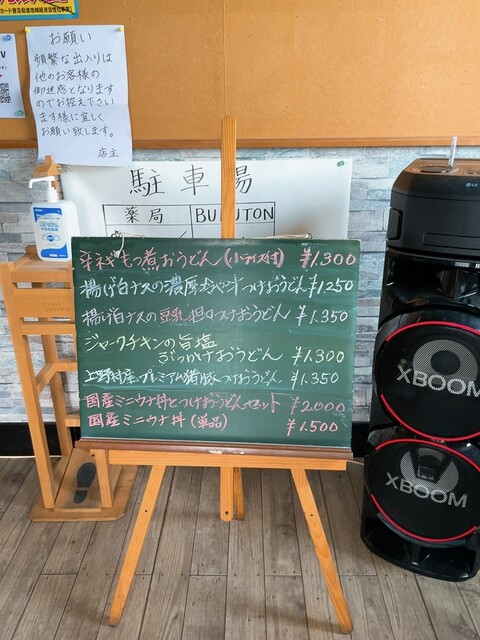 カード普及促進地域経済活性化事業
お願い
頻繁な出入りは
他のお客様の
御迷惑となります
のでお控え下さい
ます様に宜しく
お願い致します。
店主
駐車場
薬局 BUTUTON
辛ネギもつ煮おうどん(小ライス付) ¥1.300
揚げ白ナスの濃厚 つけおうどん ¥1250
揚げ白ナスの豆乳担々つけおうどん ¥1.350
ジャークチキンの旨塩
ぶっかけおうどん ¥1.300
上野村産プレミアム猪豚つけおうどん ¥1.350
国産ミニウナ丼とつけおうどんセット ¥2.000
国産ミニウナ丼(単品) ¥1.500
LG
XBOOM
XBOOM